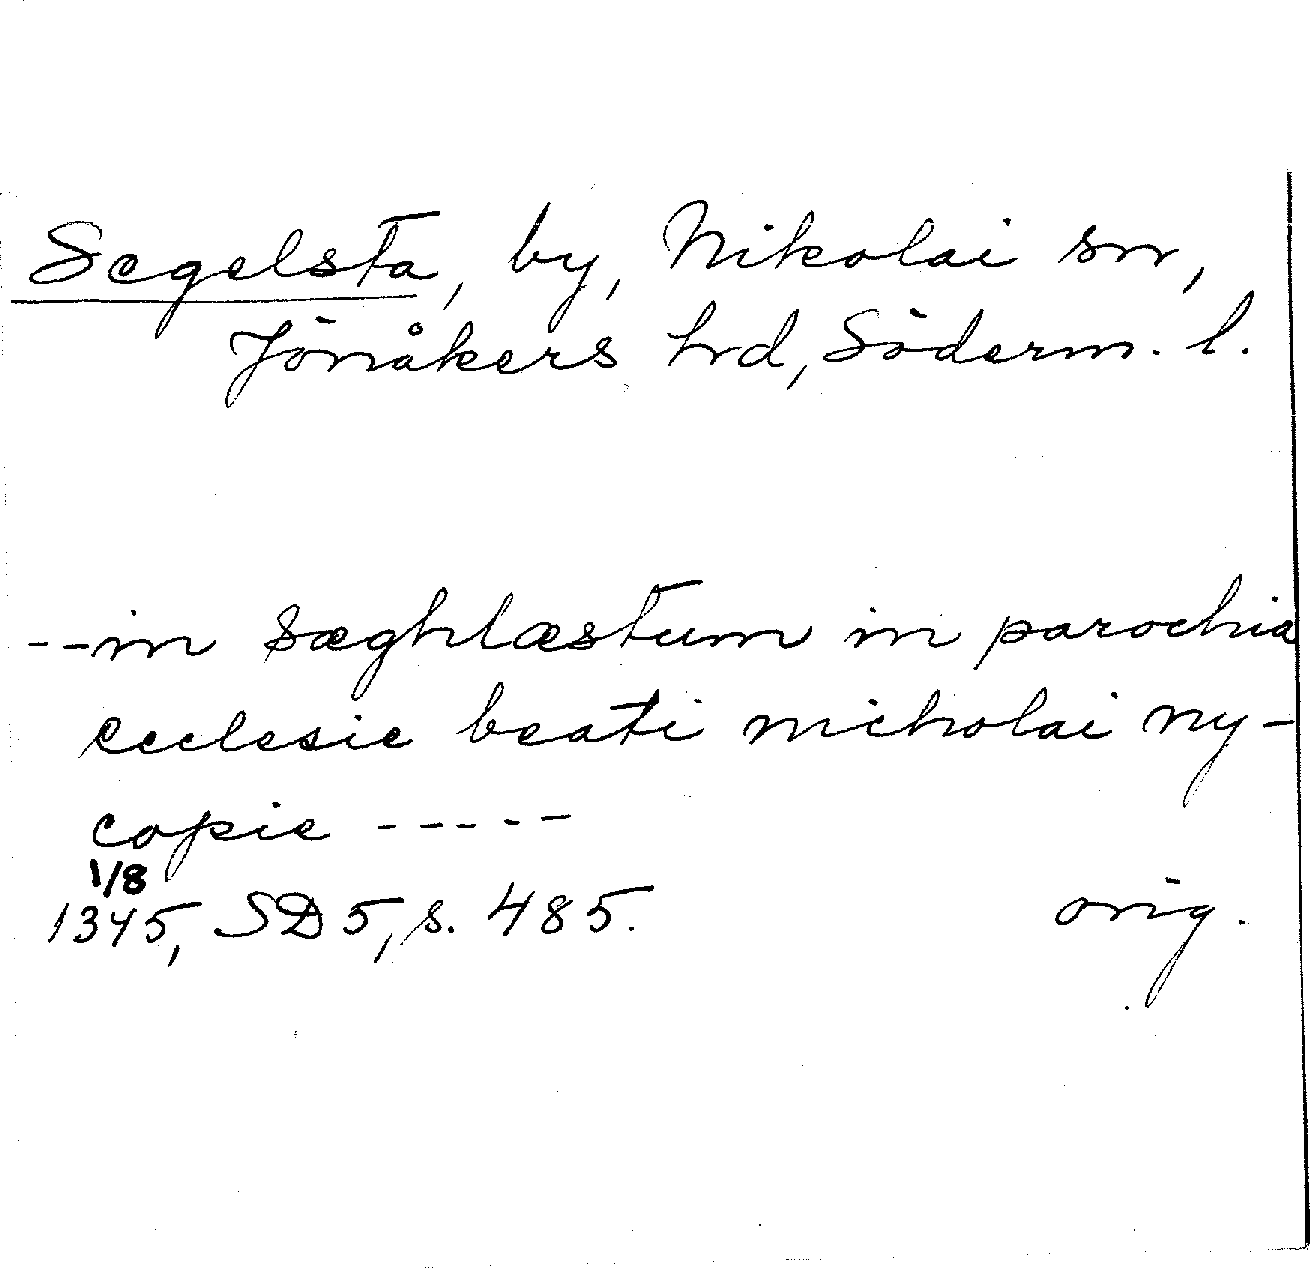 Segelsta, by, Nikolai sn,
Jönåkers hrd, Söderm. l.
--in sæghlæstum in parochia
ecclesie beati nicholai ny-
copie -----
1/8
1345, SD 5, s. 485. orig.